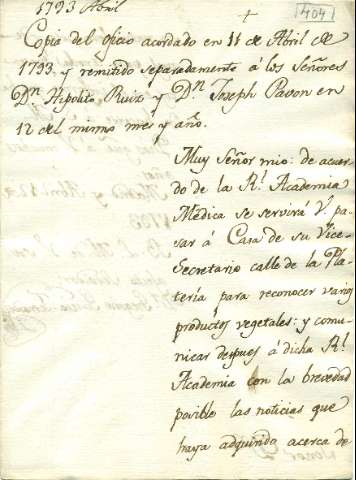 1793 Abril
404
Copia del oficio acordado en 11 de Abril de
1793 y remitido separadamente á los Señores
Dn. Hipolito Ruiz y Dn. Joseph Pavon en
12 del mismo mes y año.
Muy Señor mio: de acuer
do de la Rl. Academia
Médica se servirá V. pa
sar á Casa de su Vice-
Secretario calle de la Pla
teria para reconocer varios
productos vegetales: y comu-
nicar despues á dicha Rl.
Academia con la brevedad
posible las noticias que
haya adquirido acerca de